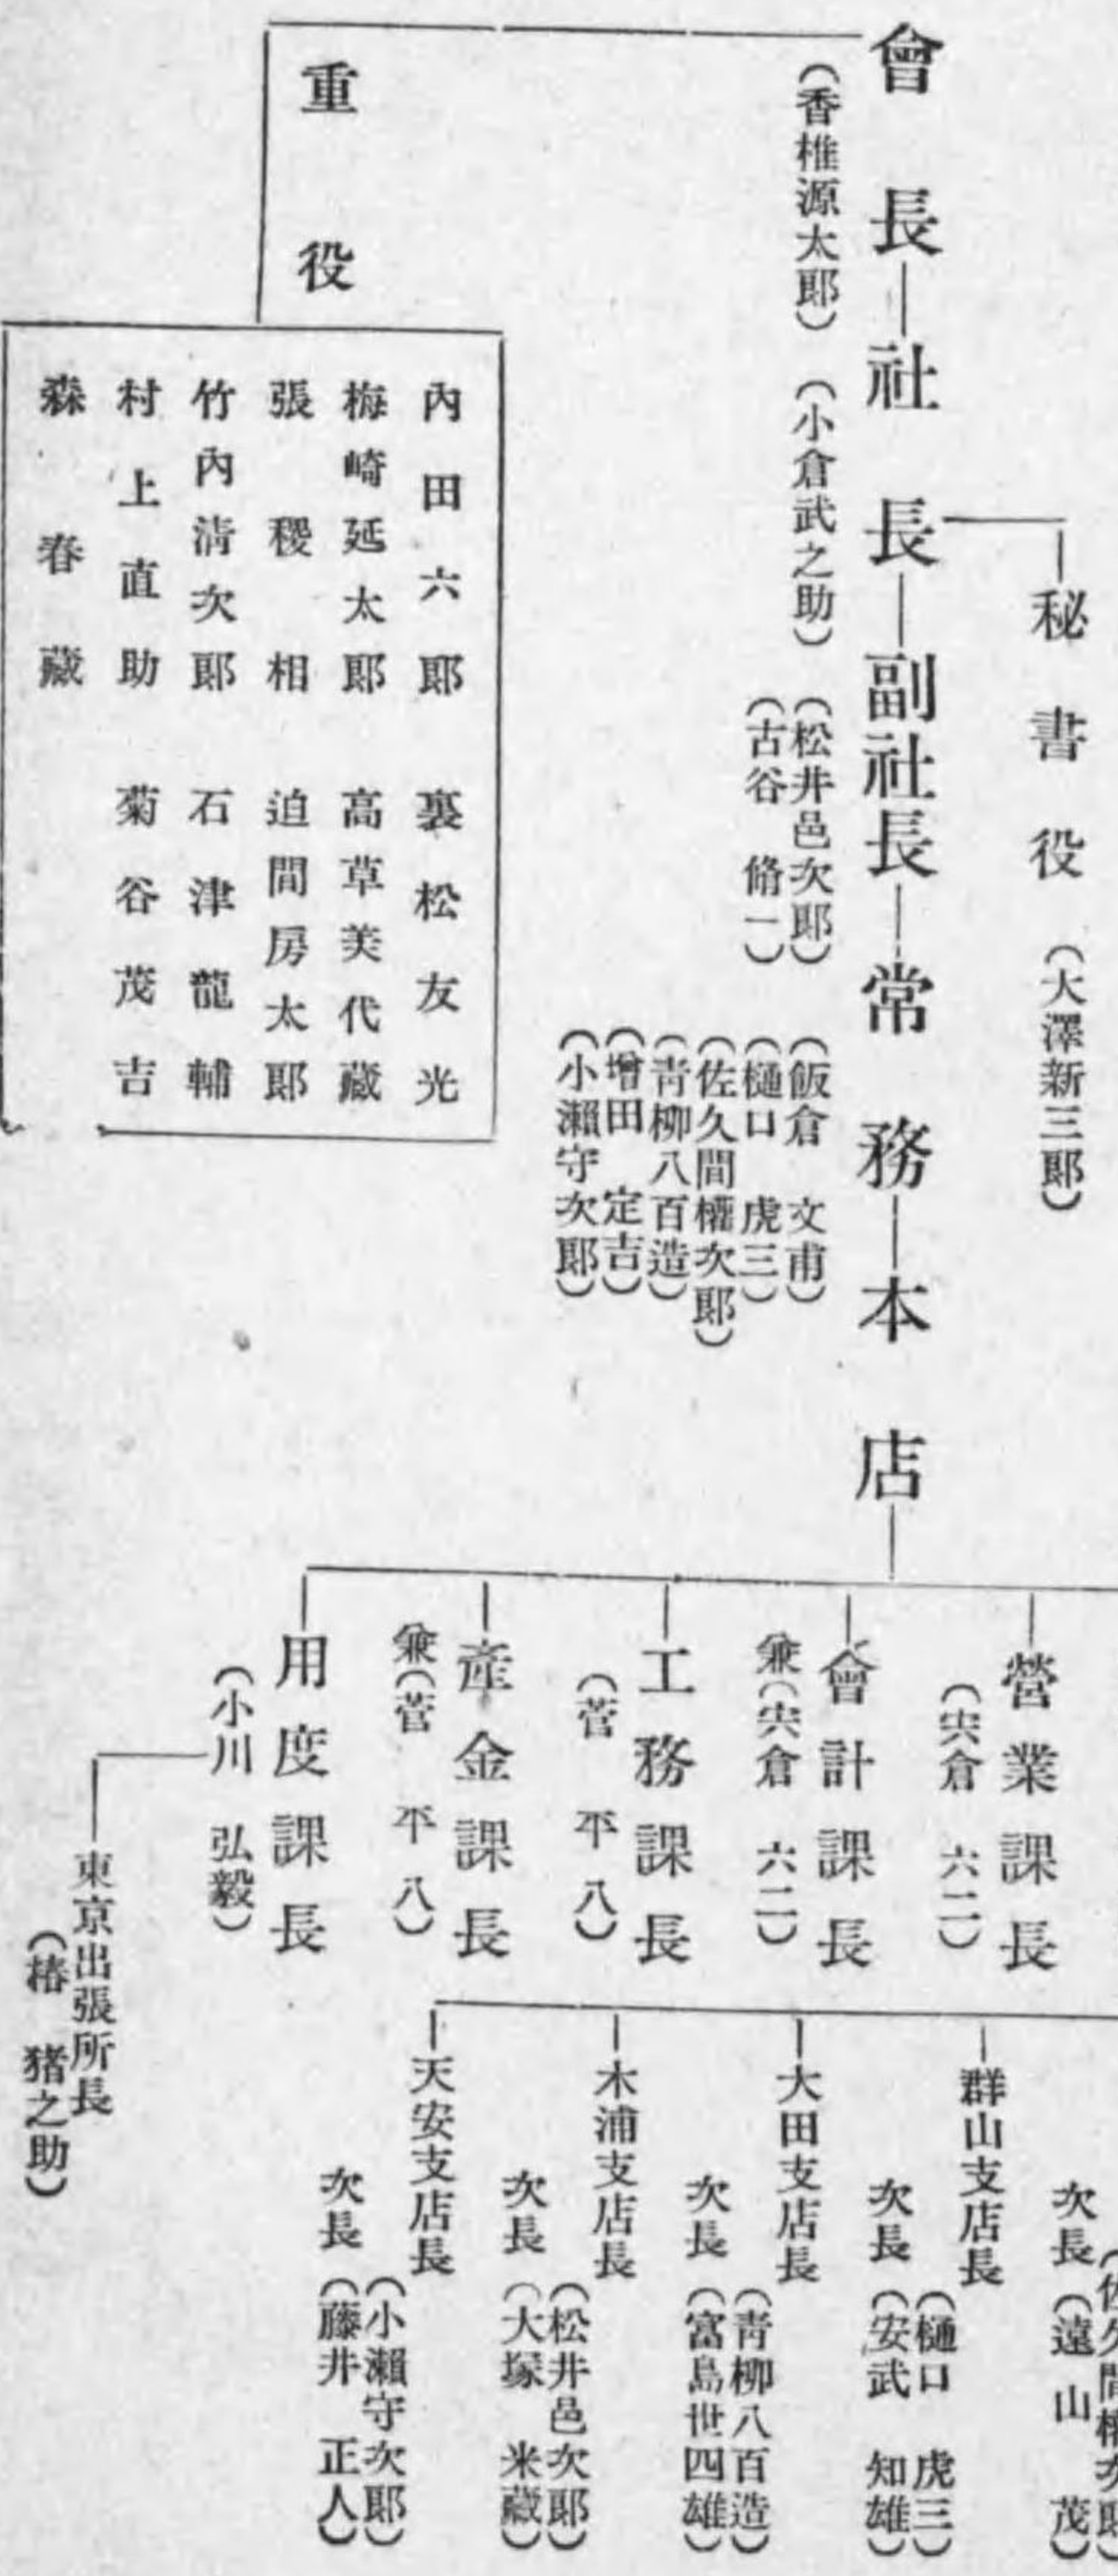 秘書役（大澤新三郞）
會長―社長―副社長―常務―本店
（香椎源太郞）（小倉武之助）（松井邑次郞）（飯倉文甫）
（古谷脩一）（樋口虎三）
（佐久間權次郞）
（靑柳八百造）
（增田定吉）
（小瀨守次郞）
重役
內田六郞　裏松友光
梅崎延太郞　高草美代藏
張稷相　迫間房太郞
竹內淸次郞　石津龍輔
村上直助　菊谷茂吉
森春藏
營業課長
（宍倉六二）
會計課長
兼（宍倉六二）
工務課長
（菅平八）
產金課長
兼（菅平八）
用度課長
（小川弘毅）
東京出張所長
（椿猪之助）
（佐久間權次郞）
次長（遠山茂）
群山支店長
（樋口虎三）
次長（安武知雄）
大田支店長
（靑柳八百造）
次長（富島世四雄）
木浦支店長
（松井邑次郞）
次長（大塚米藏）
天安支店長
（小瀨守次郞）
次長（藤井正人）